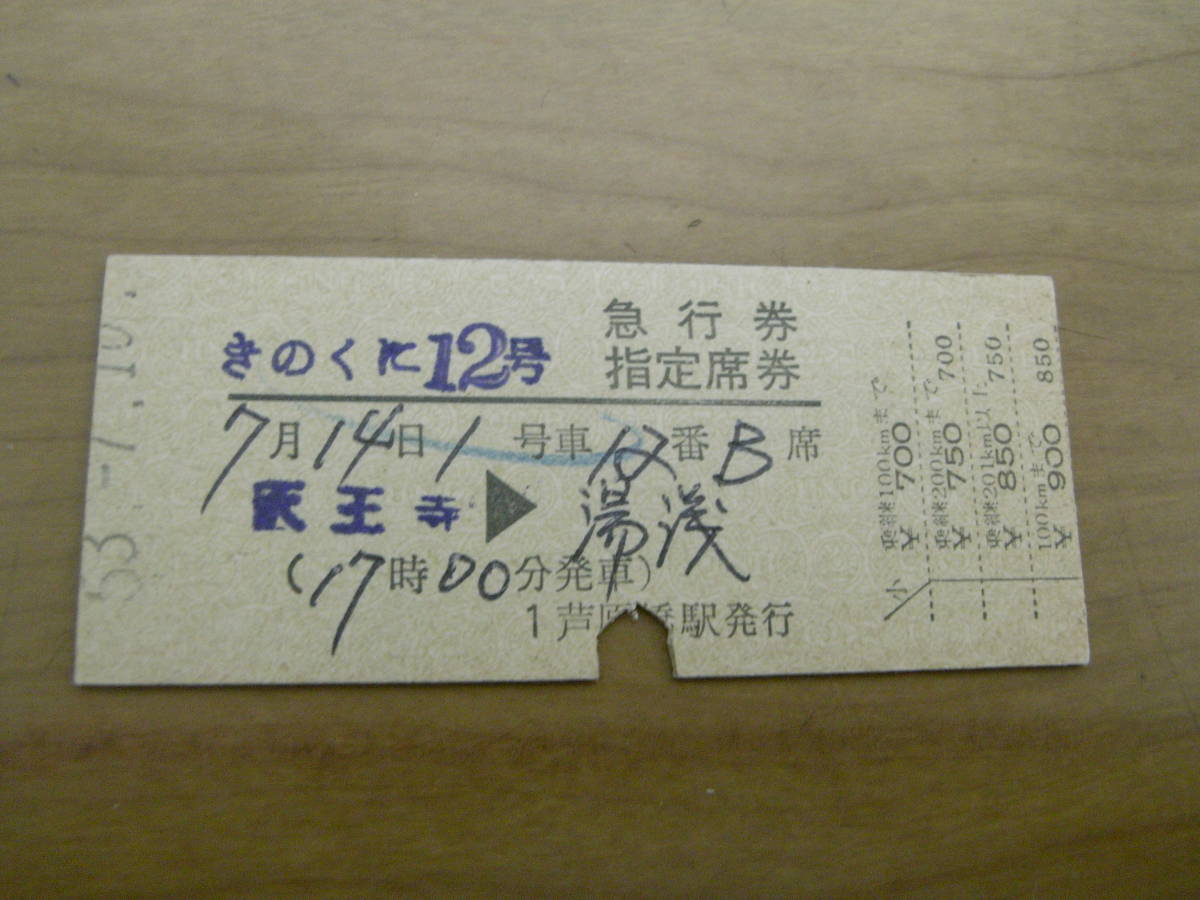 急行券
きのくに12号 指定席券
7月14日1号車12番B席
天王寺▶湯浅
(17時00分発車)
1芦原橋駅発行
53.-7.10
乗継100kmまで ¥700
乗継200kmまで ¥750 700
乗継201km以上 ¥850 750
100kmまで ¥900 850
小